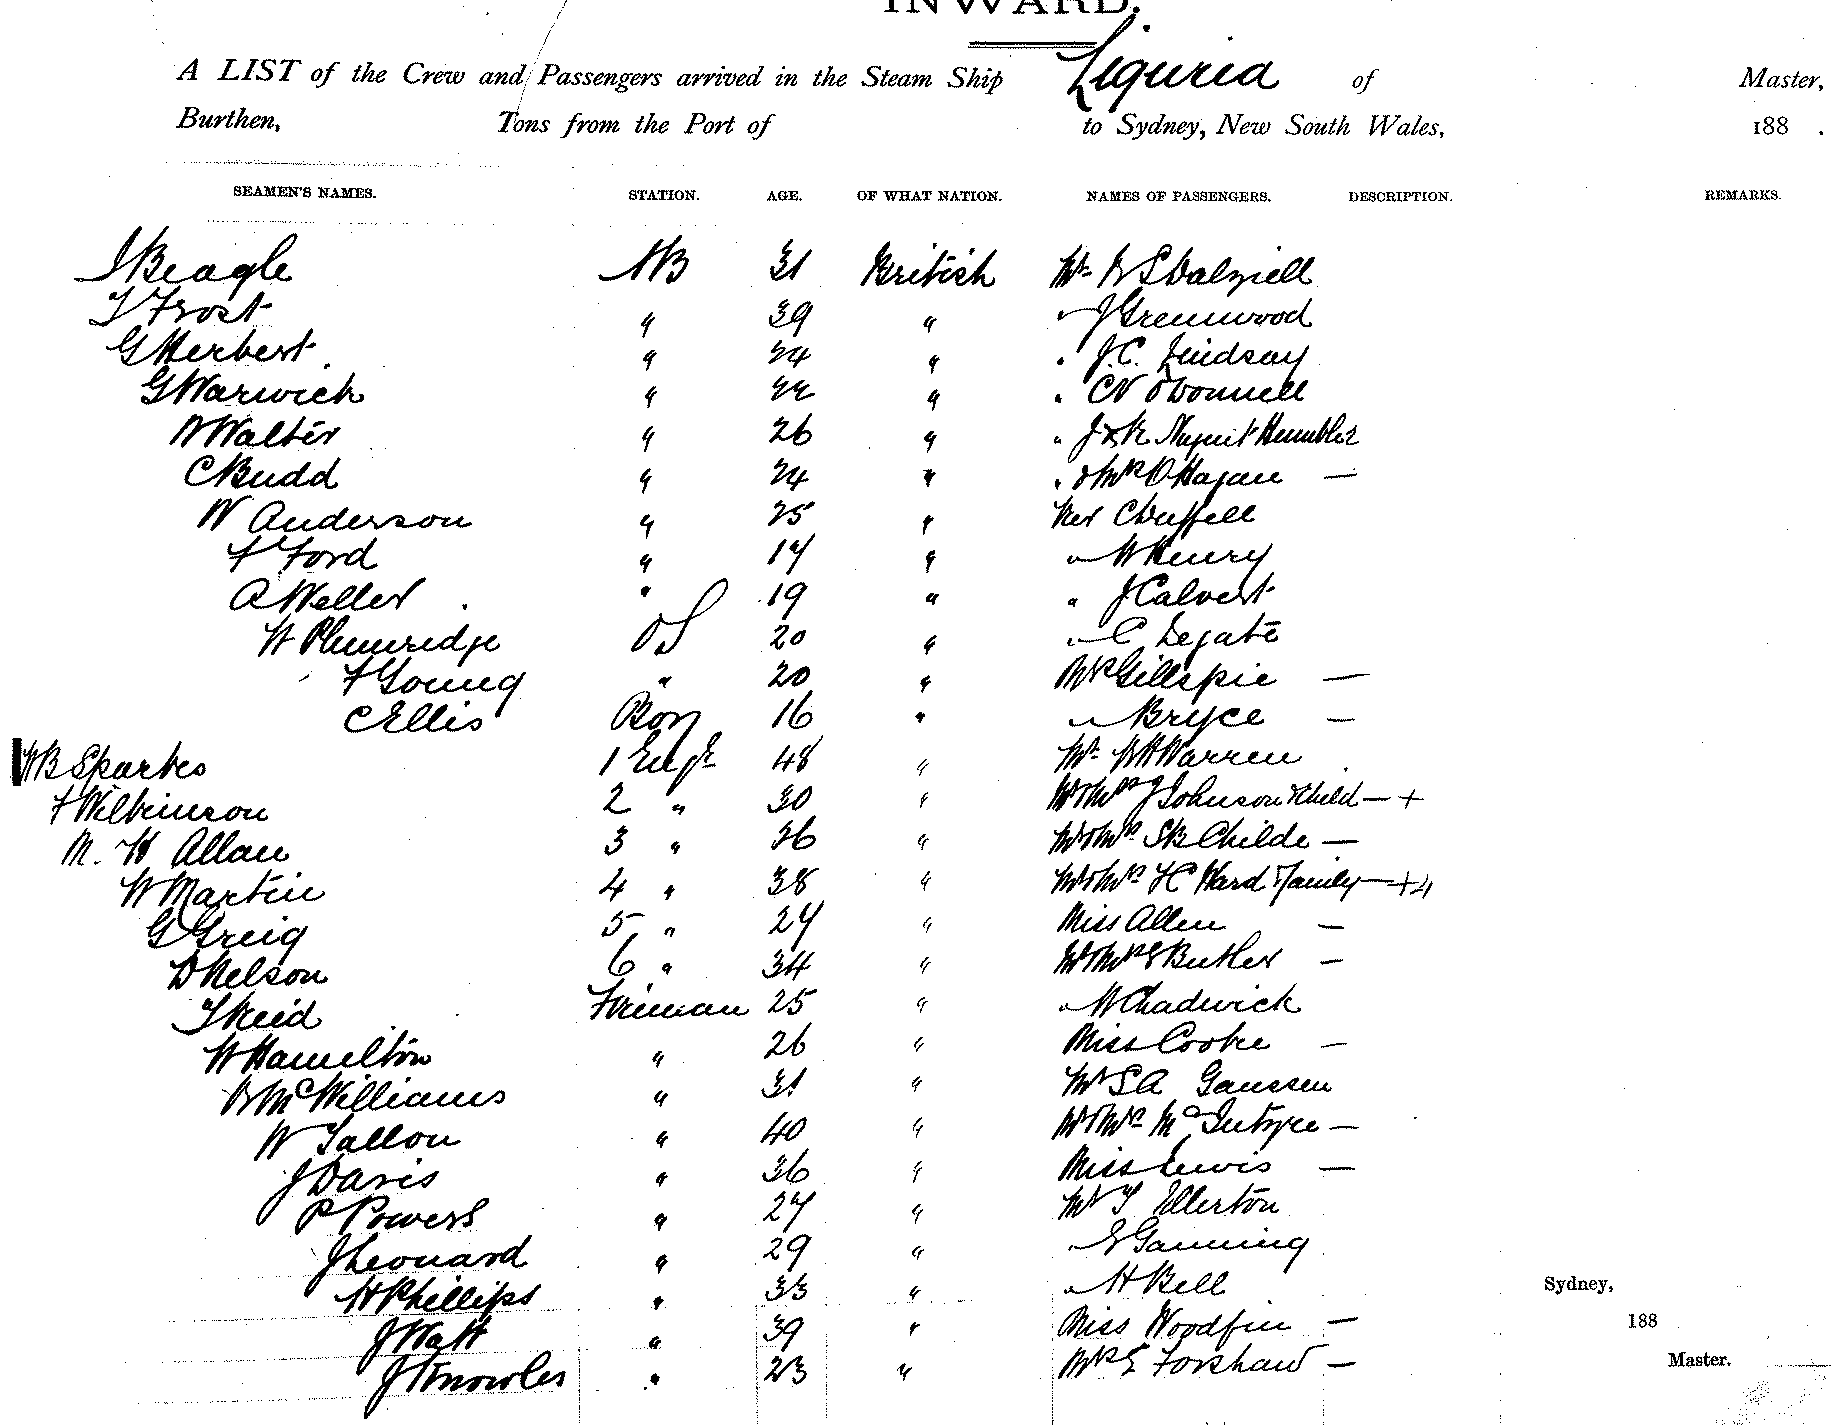 INWARD.
A LIST of the Crew and Passengers arrived in the Steam Ship Liguria of Master,
Burthen, Tons from the Port of to Sydney, New South Wales, 188 .
SEAMEN'S NAMES. STATION. AGE. OF WHAT NATION. NAMES OF PASSENGERS. DESCRIPTION. REMARKS.
J Beagle AB 31 British Mr W S Dalziell
T Frost " 39 " " J Greenwood
G Herbert " 24 " " J. C. Lindsay
G Warwick " 22 " " C V O'Donnell
W Walter " 26 " " J & R Nugent Humbler
C Budd " 24 " " & Mrs O'Hagan —
W Anderson " 25 " Rev C Duffell
F Ford " 17 " " W Henry
A Weller " 19 " " J Calvert
W Plumridge OS 20 " " C Legate
F Young " 20 " Mrs Gillespie —
C Ellis Boy 16 " " Bryce —
W B Sparkes 1 Engr 48 " Mr W H Warren
F Wilkinson 2 " 30 " Mr & Mrs J Johnson & Child — +
M. H Allan 3 " 36 " Mr & Mrs S B Childe —
W Martin 4 " 38 " Mr & Mrs H C Ward & Family — +4
G Greig 5 " 27 " Miss Allen —
D Nelson 6 " 34 " Mr & Mrs E Butler —
T Reid Fireman 25 " " W Chadwick
W Hamilton " 26 " Miss Cooke —
R McWilliams " 31 " Mr S A Gaussen
W Tallon " 40 " Mr & Mrs McIntyre —
J Davis " 36 " Miss Lewis —
P Powers " 27 " Mr T Ellerton
J Leonard " 29 " " E Ganning
H Phillips " 33 " " H Bell Sydney,
J Watt " 39 " Miss Woodfin — 188
J Knowles " 23 " Mrs E Forshaw — Master.